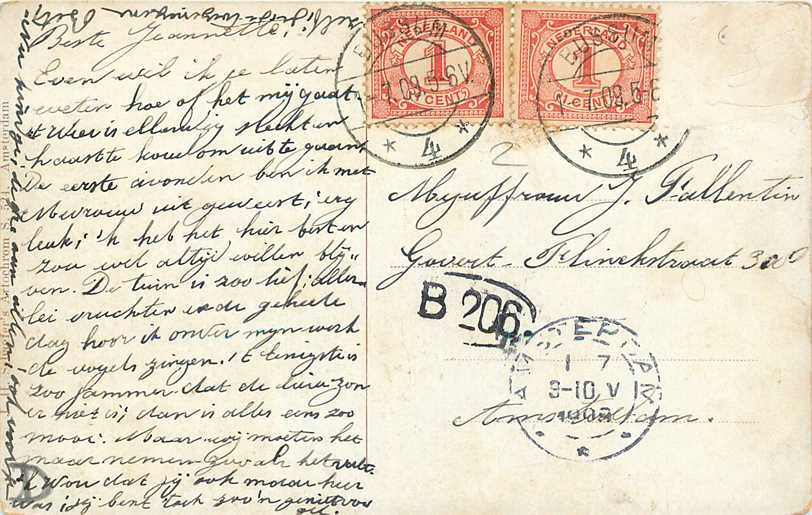 Beste Jeannette!
Even wil ik je laten
weten hoe of het mij gaat
't Weer is ellendig slecht en
haast te koud om uit te gaan.
De eerste avonden ben ik met
Mevrouw uit geweest; erg
leuk; 'k heb het hier best en
zou wel altijd willen blij"
ven. De tuin is zoo lief; aller-
lei vruchten en de geheele
dag hoor ik onder mijn werk
de vogels zingen. 't Eenigste is
zoo jammer dat de lieve zon
er niet is; dan is alles eens zoo
mooi. Maar wij moeten het
maar nemen zooals het valt.
'k Wou dat jij ook maar hier
was; jij bent toch zoo'n geniet
Bets
Amsterdam
NEDERLAND
1
1. CENT
NEDERLAND
1
1. CENT
BUSSUM
7.09.5-6V.
4
BUSSUM
7.09.5-6
4
2
Mejuffrouw J. Fallentin
Govert-Flinckstraat 300
B 206.
AMSTERDAM
1 7
9-10 V
1909
Amsterdam.
D